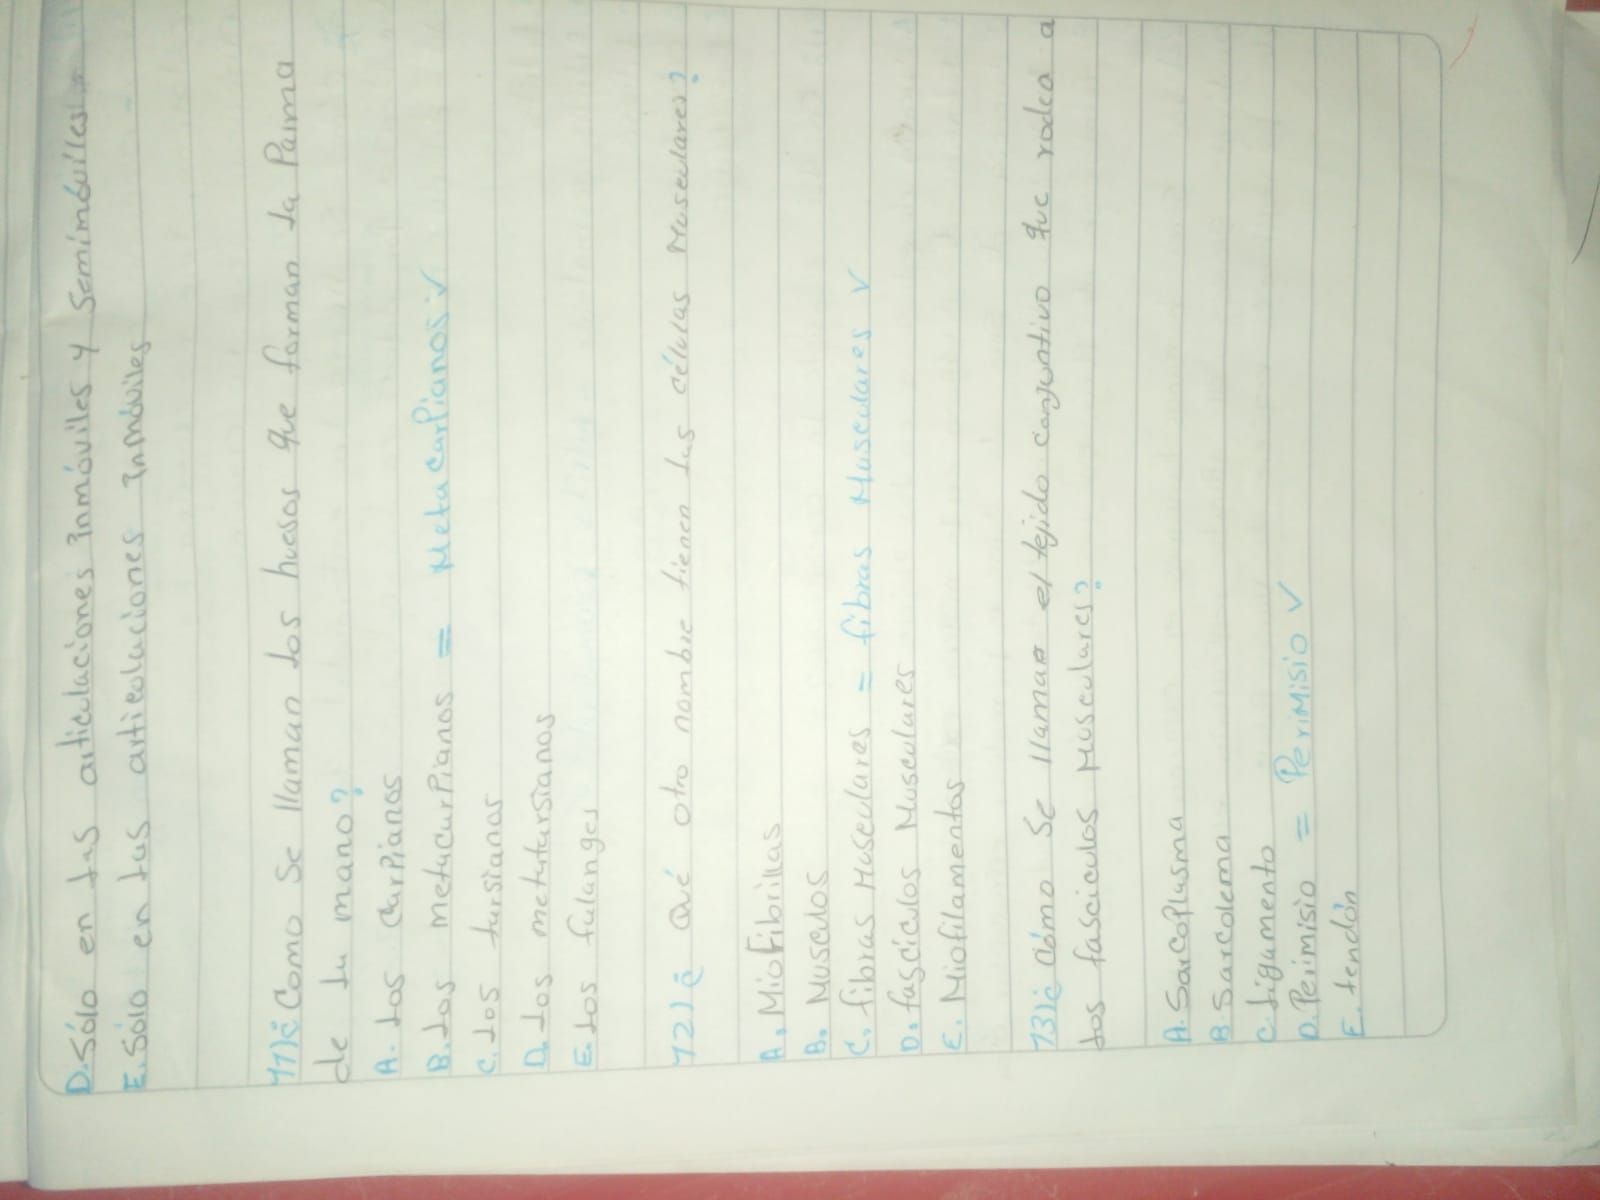 D. Sólo en las articulaciones inmóviles y semimóviles.
E. Sólo en las articulaciones inmóviles
11)¿Como se llaman los huesos que forman la Palma
de la mano?
A. los carpianos
B. los metacarpianos = Metacarpianos ✓
C. los tarsianos
D. los metatarsianos
E. los falanges
12)¿ Qué otro nombre tienen las células Musculares?
A. Miofibrillas
B. Musculos
C. fibras Musculares = fibras Musculares ✓
D. fascículos Musculares
E. Miofilamentos
13)¿ cómo se llama el tejido conjuntivo que rodea a
los fasciculos Musculares?
A. Sarcoplasma
B. Sarcolema
C. ligamento
D. Perimisio = Perimisio ✓
E. tendón